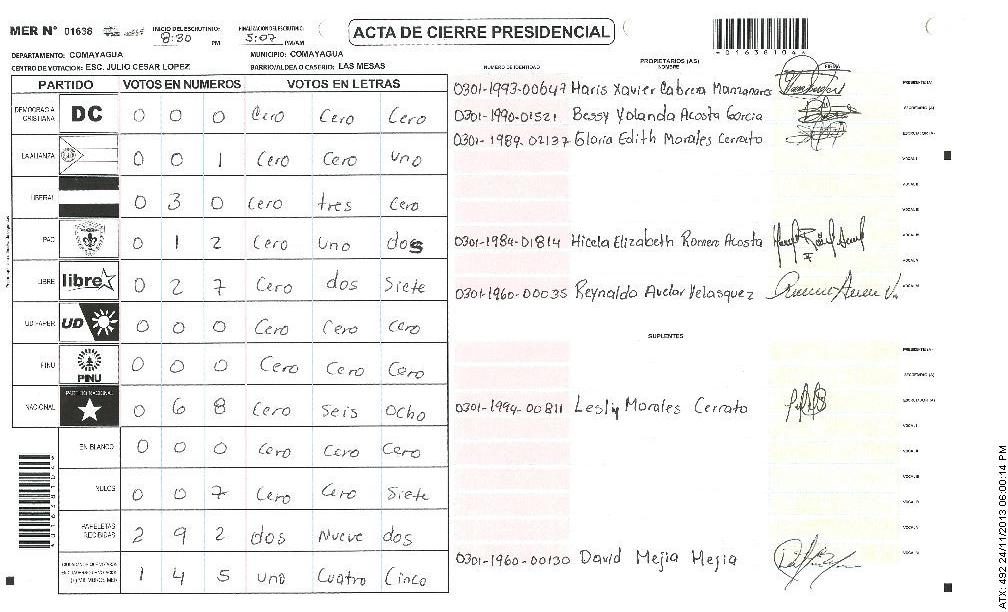 MER Nº 01638 INICIO DEL ESCRUTINIO: 8:30 PM FINALIZACION DEL ESCRUTINIO: 5:07 PM/AM
ACTA DE CIERRE PRESIDENCIAL
*01638104*
DEPARTAMENTO: COMAYAGUA MUNICIPIO: COMAYAGUA
CENTRO DE VOTACION: ESC. JULIO CESAR LOPEZ BARRIO/ALDEA O CASERIO: LAS MESAS
PARTIDO VOTOS EN NUMEROS VOTOS EN LETRAS
DEMOCRACIA CRISTIANA DC 0 0 0 Cero Cero Cero
LA ALIANZA 0 0 1 Cero Cero uno
LIBERAL 0 3 0 Cero tres Cero
PAC 0 1 2 Cero uno dos
LIBRE libre 0 2 7 Cero dos Siete
UD FAPER UD 0 0 0 Cero Cero Cero
PINU PINU 0 0 0 Cero Cero Cero
NACIONAL PARTIDO NACIONAL 0 6 8 Cero Seis Ocho
EN BLANCO 0 0 0 Cero Cero Cero
NULOS 0 0 7 Cero Cero Siete
PAPELETAS RECIBIDAS 2 9 2 dos Nueve dos
1 4 5 uno Cuatro Cinco
NUMERO DE IDENTIDAD PROPIETARIOS (AS) NOMBRE FIRMA
0301-1993-00647 Haris Xavier Cabrera Manzanares PRESIDENTE (A)
0301-1990-01521 Bessy Yolanda Acosta Garcia SECRETARIO (A)
0301-1989-02137 Gloria Edith Morales Cerrato ESCRUTADOR (A)
VOCAL I
VOCAL II
VOCAL III
0301-1984-01814 Hicela Elizabeth Romero Acosta VOCAL IV
VOCAL V
0301-1960-00035 Reynaldo Avelar Velasquez VOCAL VI
SUPLENTES
PRESIDENTE (A)
SECRETARIO (A)
0301-1994-00811 Lesly Morales Cerrato ESCRUTADOR (A)
VOCAL I
VOCAL II
VOCAL III
VOCAL IV
VOCAL V
0301-1960-00130 David Mejia Mejia VOCAL VI
ATX: 492 24/11/2013 06:00:14 PM